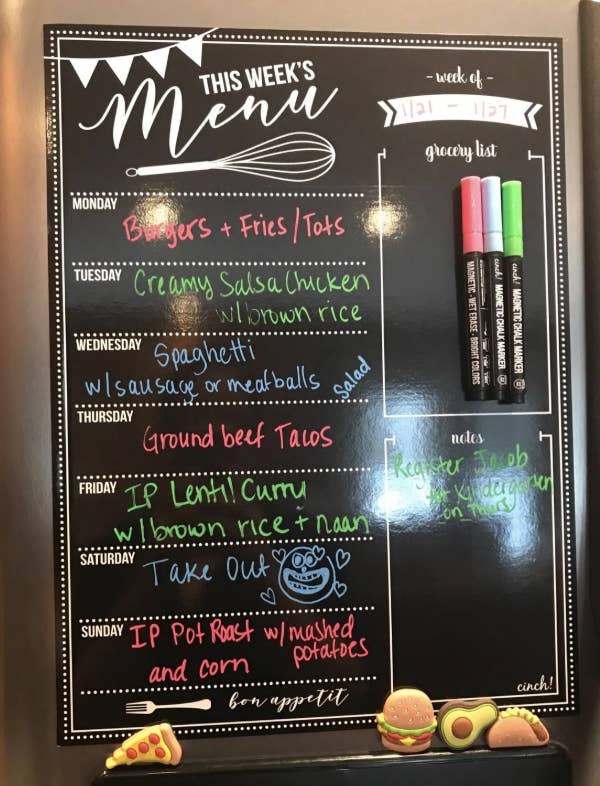 THIS WEEK'S
Menu
- week of -
1/21 - 1/27
grocery list
MONDAY
Burgers + Fries/Tots
TUESDAY
Creamy Salsa Chicken
w/brown rice
WEDNESDAY
Spaghetti
w/sausage or meatballs
Salad
THURSDAY
Ground beef Tacos
FRIDAY
IP Lentil Curry
w/brown rice + naan
SATURDAY
Take Out
SUNDAY
IP Pot Roast w/mashed
potatoes
and corn
bon appetit
MAGNETIC · WET ERASE · BRIGHT COLORS
cinch! MAGNETIC CHALK MARKER
cinch! MAGNETIC CHALK MARKER
notes
Register Jacob
for Kindergarten
on Thurs
cinch!